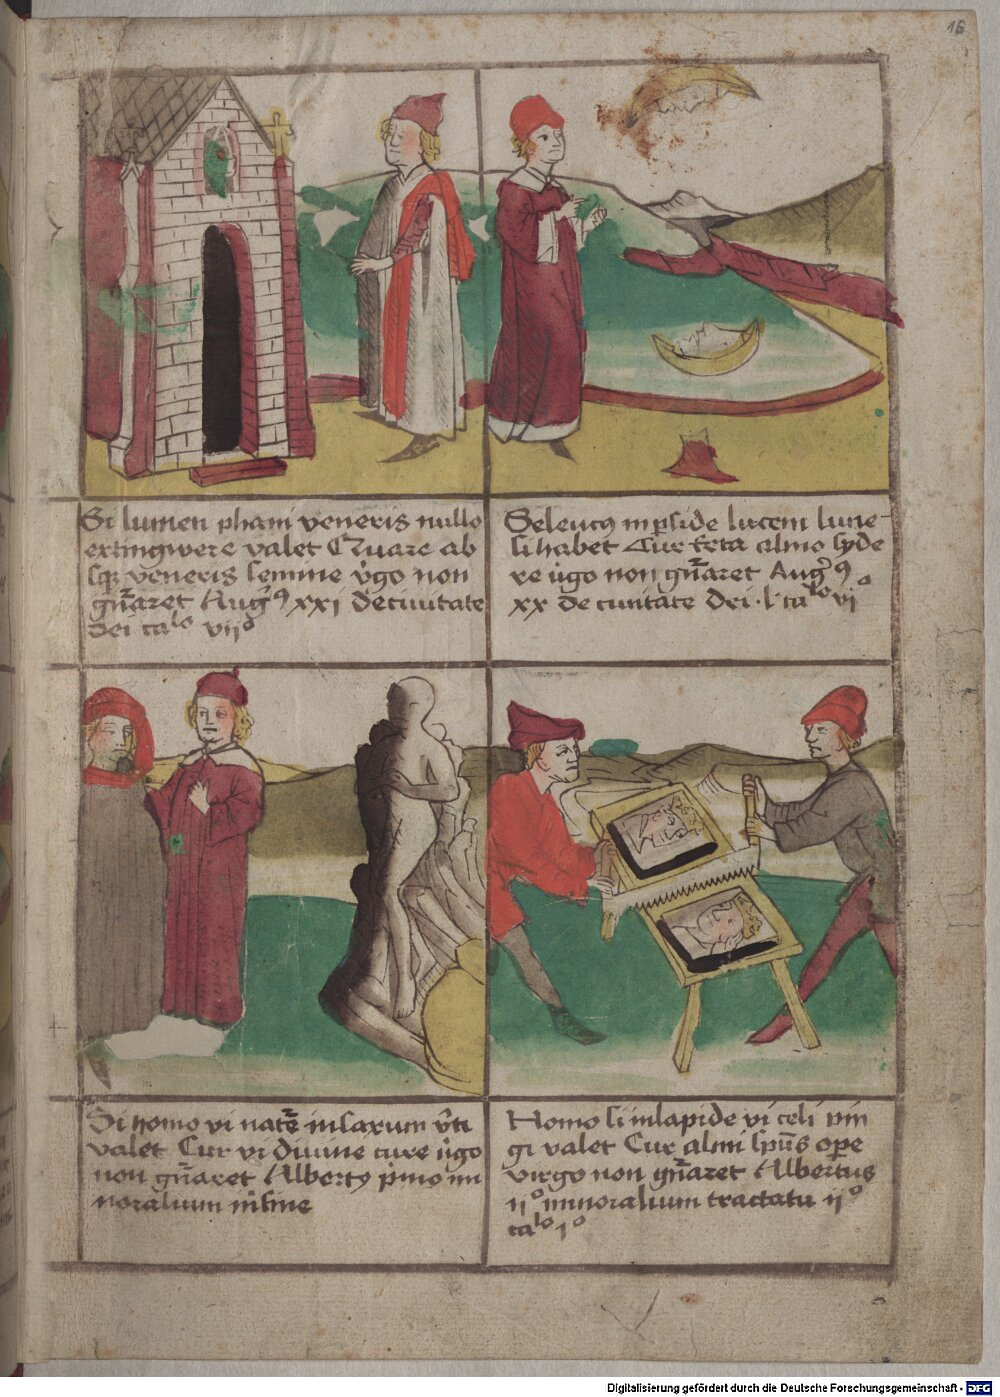 16
Si lumen phani veneris nullo
extingwere valet Quare ab
sqʒ veneris semine v̓go non
gn̄aret Augꝰ xxi de civitate
dei calo vijo
Seleucꝰ in ꝑside lucem lune
si habet Cur feta almo syde
re v̓go non gn̄aret Augꝰ
xx de civitate dei · calo vio
Si homo vi natē in saxum v̓ti
valet Cur vi divine cure v̓go
non gn̄aret Albertꝰ pͥmo mi
noralium in fine
Homo si in lapide vi celi pin
gi valet Cur almi sp̄us oꝑe
virgo non gn̄aret Albertus
ijo minoralium tractatu ijo
calo io
Digitalisierung gefördert durch die Deutsche Forschungsgemeinschaft - DFG